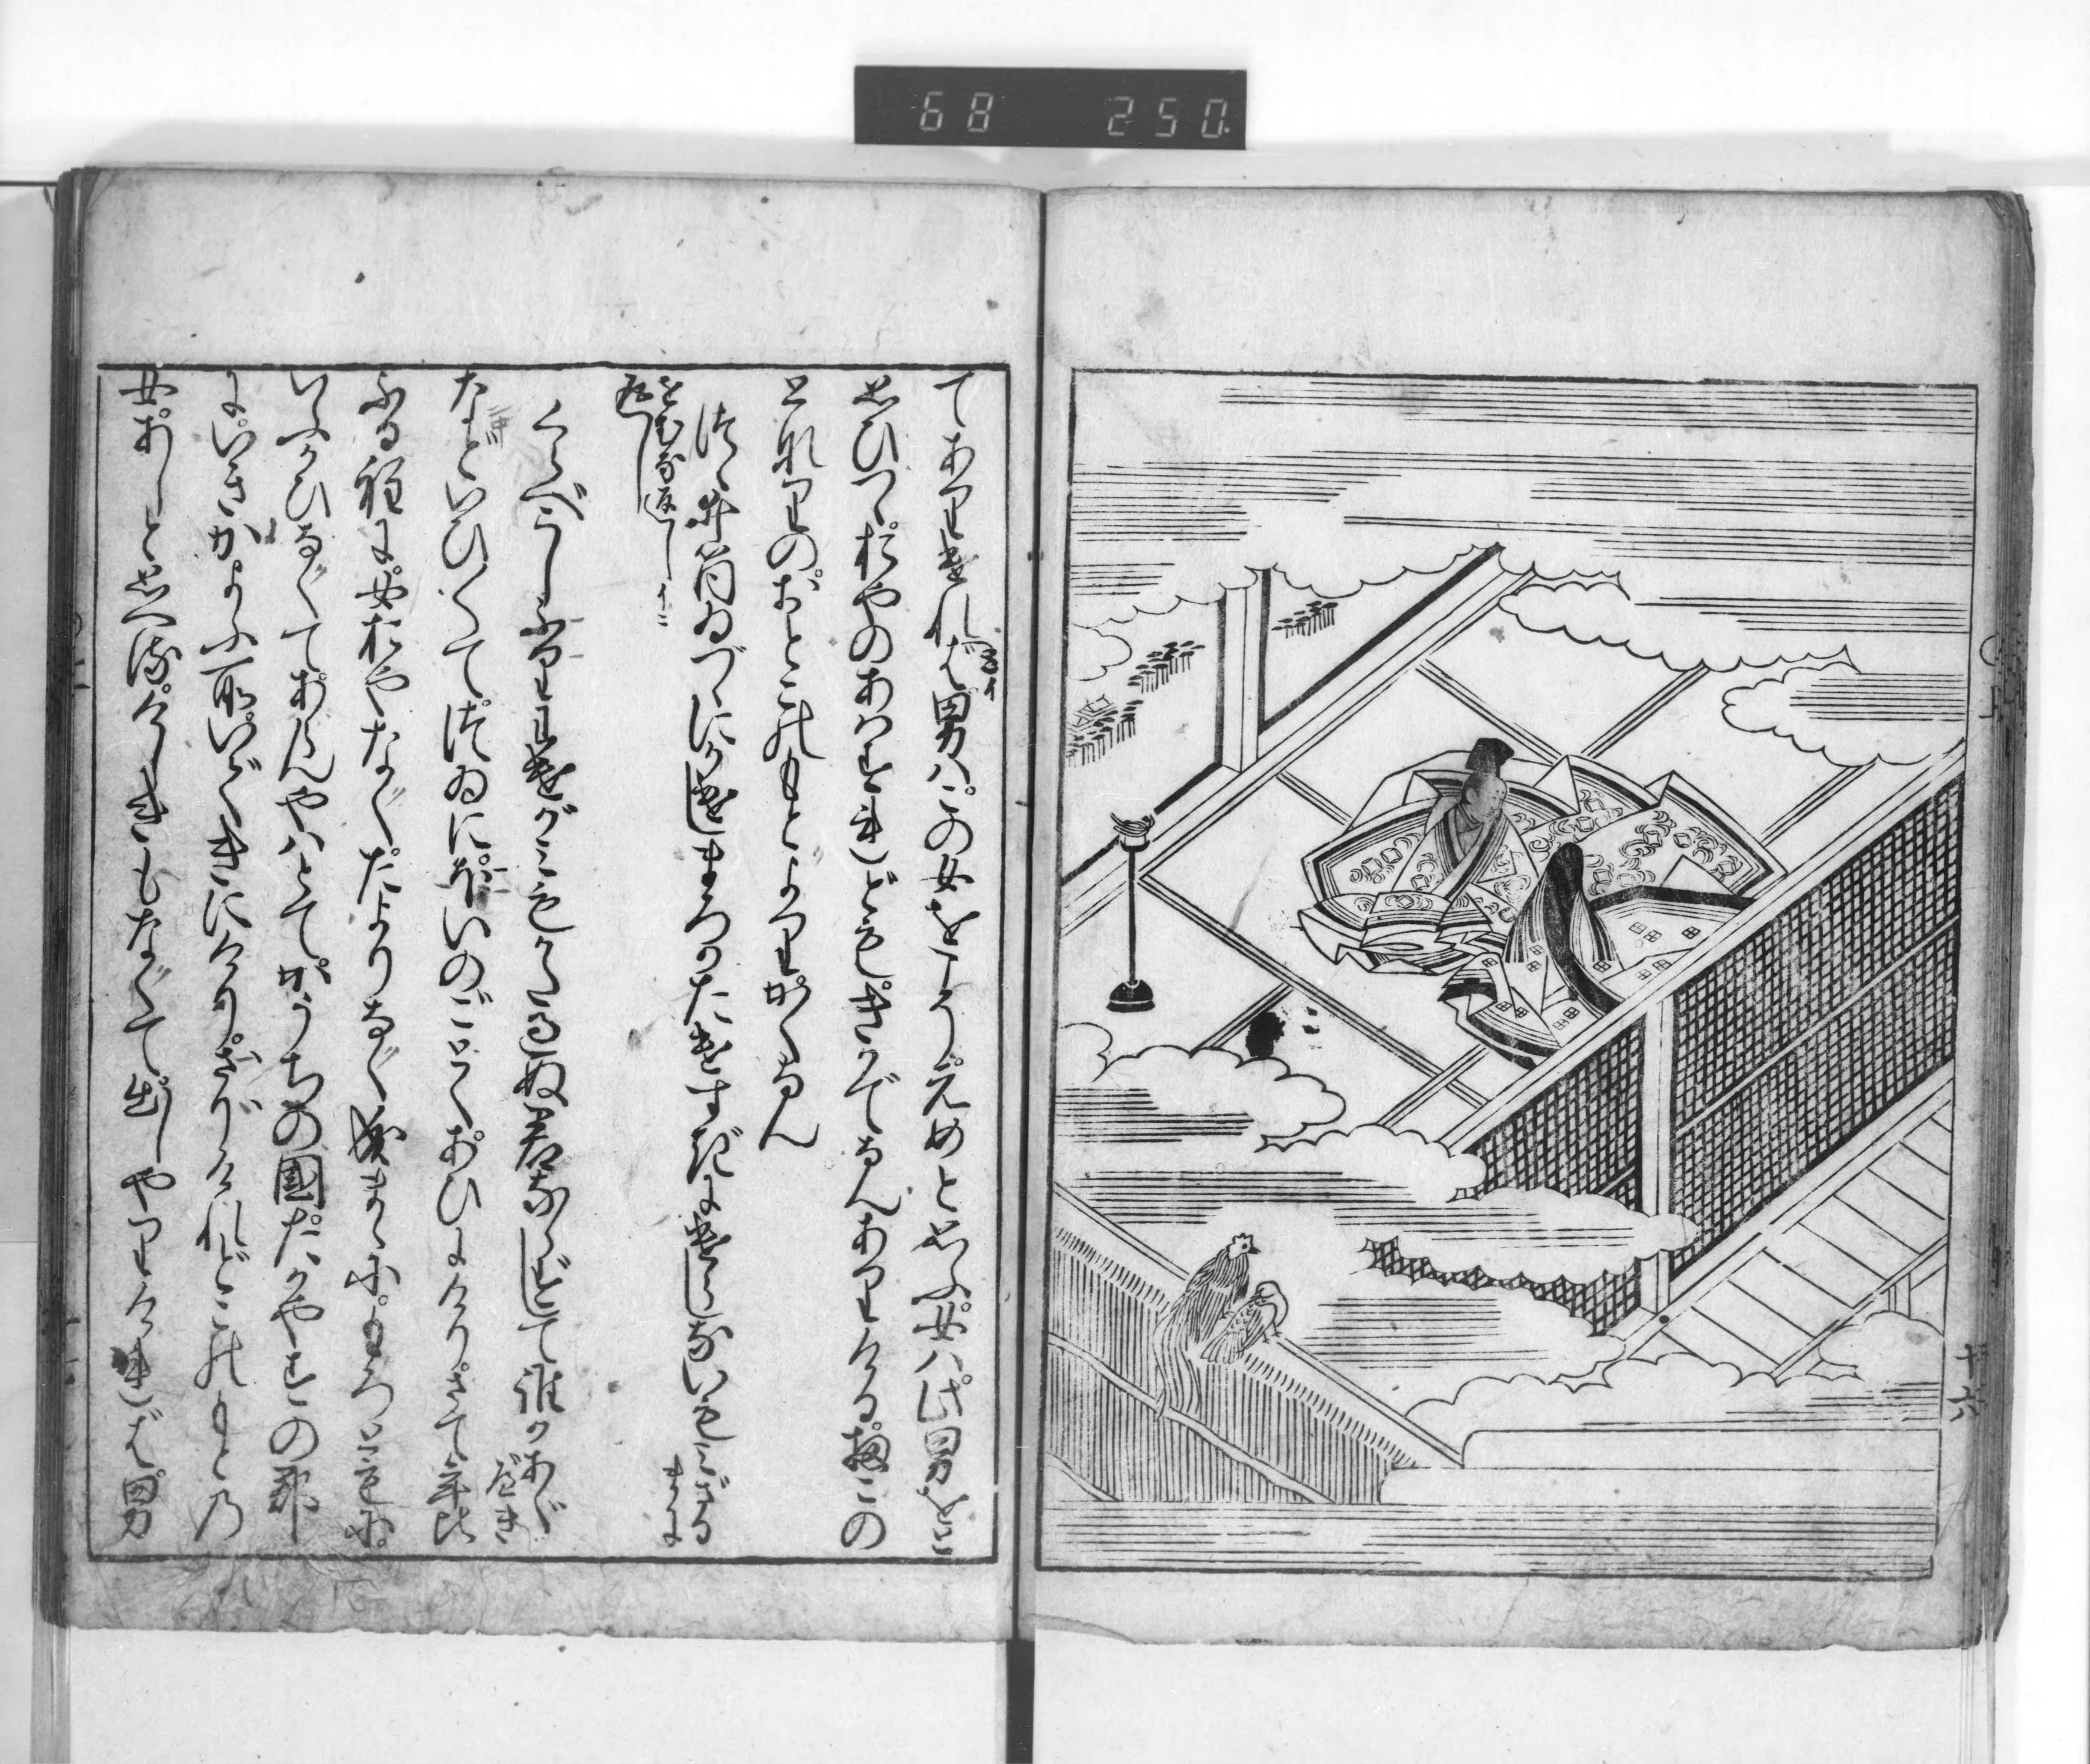 68 250
十六
てありければ男ハこの女をこそえめと思ふ女ハ此男をと
思ひつゝおやのあはすれどもきかでなんありける扨この
となりのおとこのもとよりかくなん
つゝ井筒ゐづゝにかけしまろかたけすぎにけらしないもみざる
まに
をむな返し
返し
くらべこしふりわけがみもかた過ぬ君ならずして誰かあぐ
べき
などいひ〳〵てつゐにほいのごとくあひにけりさて年比
ふる程に女おやなくたよりなく成まゝにもろともに
いふかひなくてあらんやハとてかうちの國たかやすの郡
にいきかよふ所いできにけりさりけれどこのもとの
女あしと思へるけしきもなくて出しやりければ男